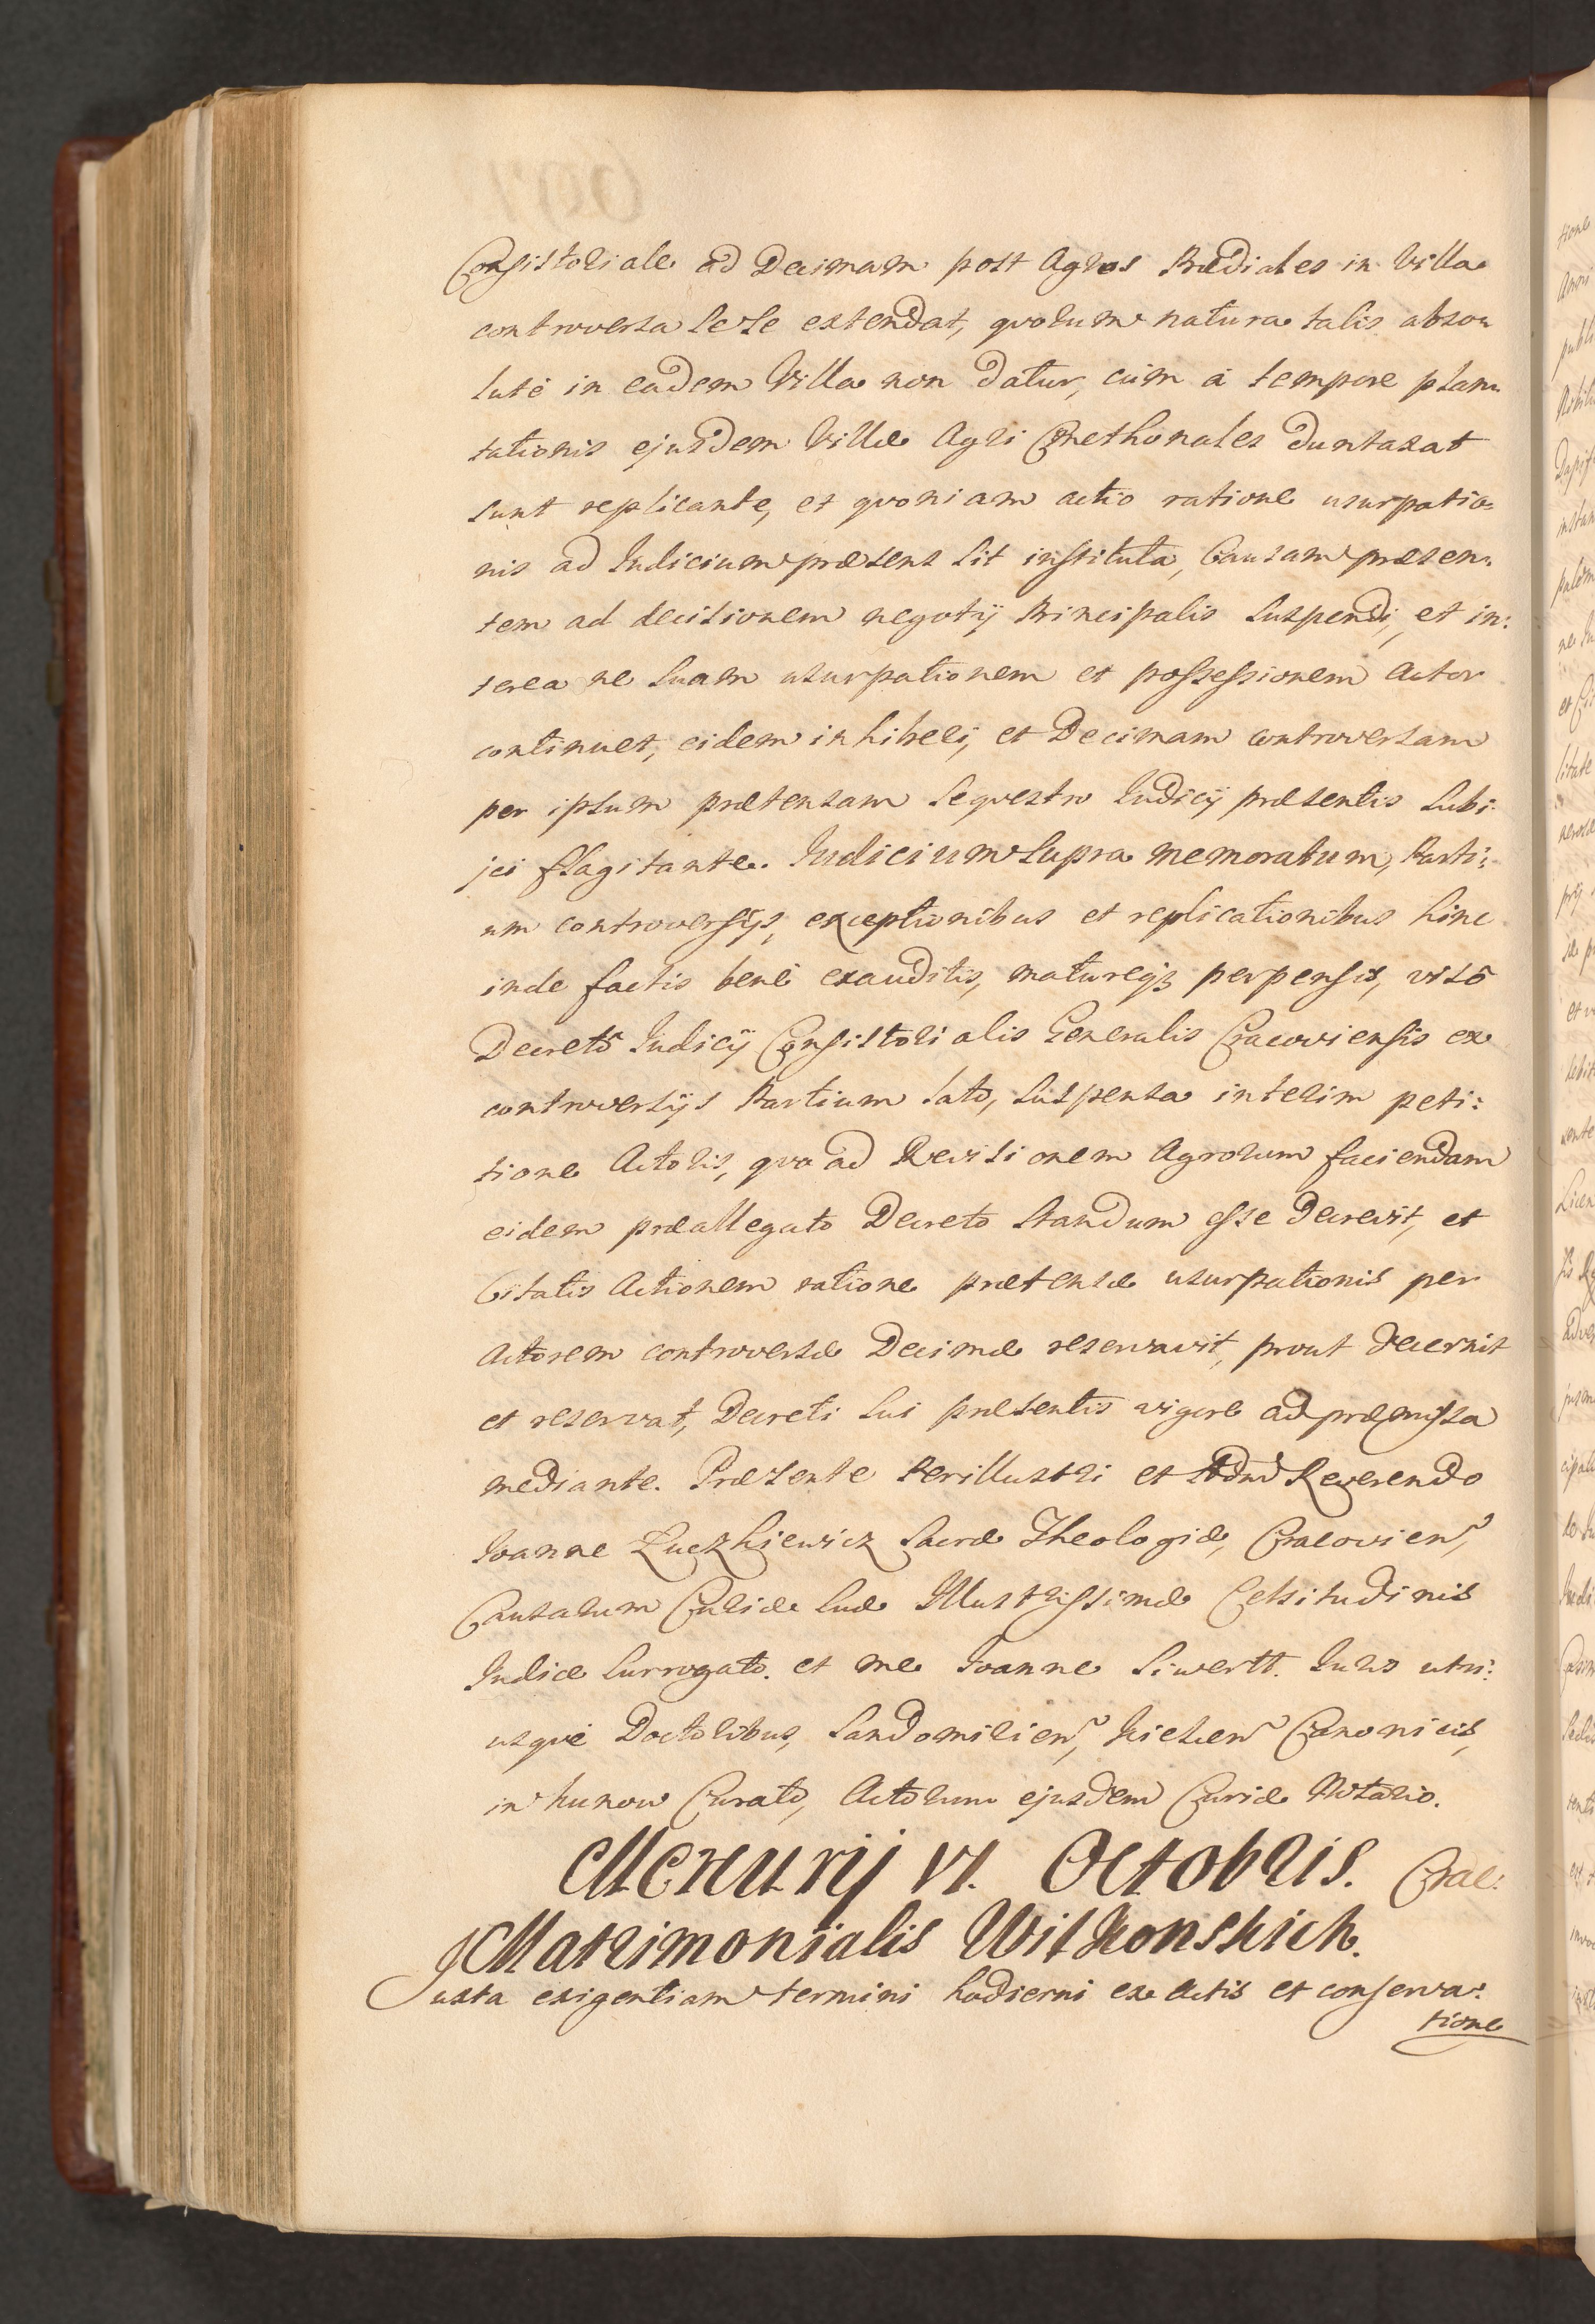 Consistoriale ad Decimam post Agros Prædiales in Villa
controversa sese extendat, quorum natura talis abso⸗
lutè in eadem Villa non datur, cùm à tempore plan⸗
tationis ejusdem Villæ Agri Cmethonales duntaxat
sunt replicante, et quoniam actio ratione usurpatio⸗
nis ad Judicium præsens sit instituta, Causam præsen⸗
tem ad decisionem negotij Principalis suspendi, et in:
terea ne suam usurpationem et possessionem Actor
continuet, eidem inhiberi, et Decimam controversam
per ipsum prætensam sequestro Judicij præsentis subi:
jci flagitante. Judicium supra memoratum, Parti:
um controversijs, exceptionibus et replicationibus hinc
inde factis benè exauditis, matureq3 perpensis, visô
Decretô Judicij Consistorialis Generalis Cracoviensis ex
controversijs Partium lato, suspensa interim peti:
tione Actoris, quo ad Revisionem Agrorum faciendam
eidem præallegato Decreto standum esse decrevit, et
Citatis Actionem ratione prætensæ usurpationis per
Actorem controversæ Decimæ reservavit, prout decernit
et reservat, Decreti sui præsentis vigore ad præmissa
mediante. Præsente Perillustri et Adnd Reverendo
Joanne Łuczkiewicz Sacræ Theologiæ, Cracovien,
Causarum Curiæ suæ Illustrissimæ Celsitudinis
Judice Surrogato. et me Joanne Siwertt. Juris utri:
usqve Doctoribus, Sandomirien, Kielcen Canonicis,
in Kunow Curato, Actorum ejusdem Curiæ Notario.
Mercurij VI. Octobris. Crac:
Matrimonialis Witkonskich.
Juxta exigentiam termini hodierni ex Actis et conserva:
tione